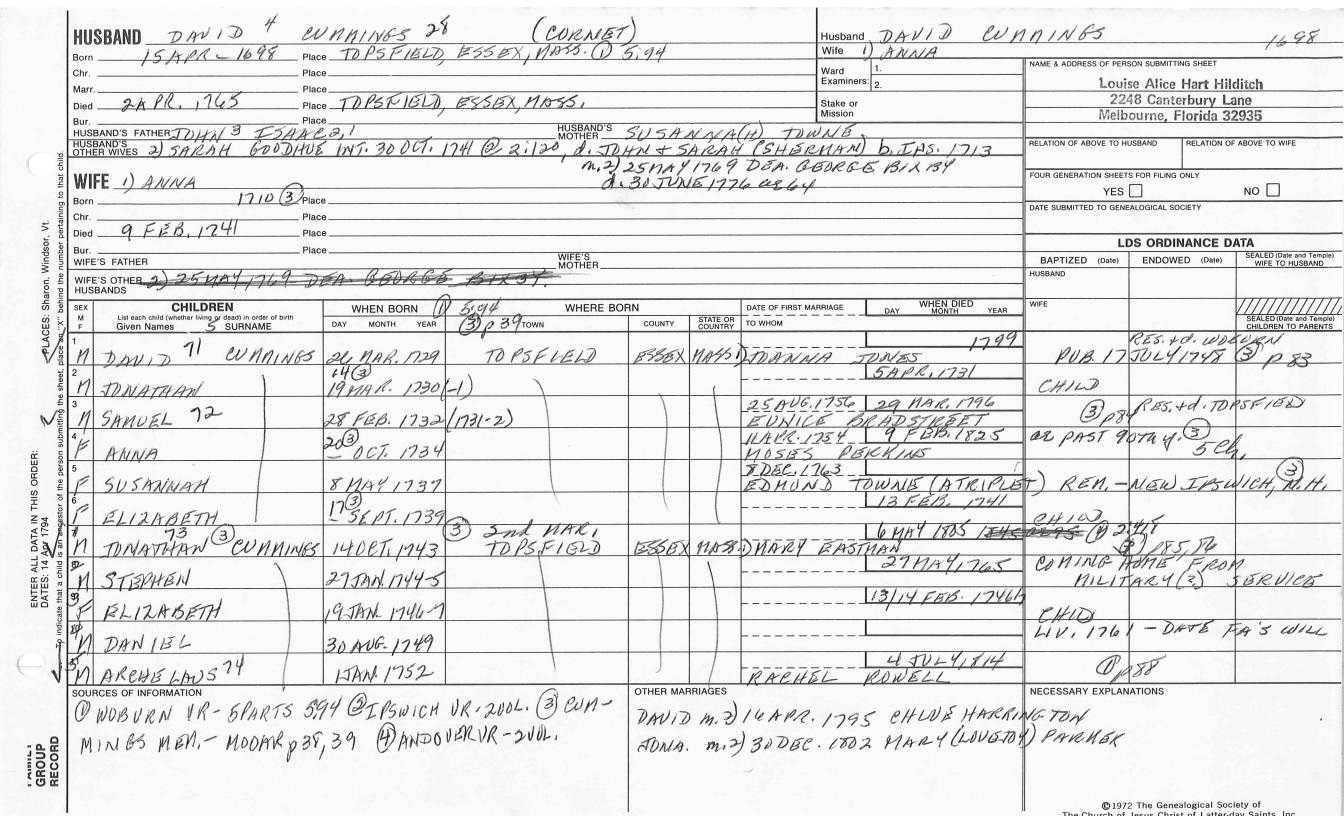 HUSBAND DAVID 4 CUMMINGS 28 (CORNET)
Born 15 APR - 1698 Place TOPSFIELD, ESSEX, MASS. ① 5:94
Chr. Place
Marr. Place
Died 2 APR. 1765 Place TOPSFIELD, ESSEX, MASS.
Bur. Place
HUSBAND'S FATHER JOHN 3 ISAAC 2,1 HUSBAND'S MOTHER SUSANNA(H) TOWNE
HUSBAND'S OTHER WIVES 2) SARAH GOODHUE INT. 30 OCT. 1741 ② 2:120, d. JOHN & SARAH (SHERMAN) b. IPS. 1713
m. 2) 25 MAY 1769 DEA. GEORGE BIXBY
d. 30 JUNE 1776 ae 64
Husband DAVID CUMMINGS 1698
Wife 1) ANNA
Ward Examiners: 1.
2.
Stake or Mission
NAME & ADDRESS OF PERSON SUBMITTING SHEET
Louise Alice Hart Hilditch
2248 Canterbury Lane
Melbourne, Florida 32935
RELATION OF ABOVE TO HUSBAND RELATION OF ABOVE TO WIFE
FOUR GENERATION SHEETS FOR FILING ONLY
YES NO
DATE SUBMITTED TO GENEALOGICAL SOCIETY
WIFE 1) ANNA
Born 1710 ③ Place
Chr. Place
Died 9 FEB. 1741 Place
Bur. Place
WIFE'S FATHER WIFE'S MOTHER
WIFE'S OTHER HUSBANDS 2) 25 MAY, 1769 DEA. GEORGE BIXBY.
LDS ORDINANCE DATA
BAPTIZED (Date) ENDOWED (Date) SEALED (Date and Temple) WIFE TO HUSBAND
HUSBAND
WIFE
SEALED (Date and Temple) CHILDREN TO PARENTS
SEX M F CHILDREN WHEN BORN ① 5:94 WHERE BORN DATE OF FIRST MARRIAGE WHEN DIED
List each child (whether living or dead) in order of birth
Given Names 5 SURNAME DAY MONTH YEAR ③ p 39 TOWN COUNTY STATE OR COUNTRY TO WHOM DAY MONTH YEAR
1 M DAVID 71 CUMMINGS 26 MAR. 1729 TOPSFIELD ESSEX MASS 1) JOANNA JONES 1799 RES. & d. WOBURN
PUB. 17 JULY 1748 ③ p 83
2 M JONATHAN 14 ③ 19 MAR. 1730 (-1) 5 APR. 1731 CHILD
3 M SAMUEL 72 28 FEB. 1732 (1731-2) 25 AUG. 1756 29 MAR. 1796
EUNICE BRADSTREET ③ p 84 RES. & d. TOPSFIELD
4 F ANNA 20 ③ - OCT. 1734 11 APR. 1754 9 FEB. 1825
MOSES PERKINS ae PAST 90TH Y. ③ 5 Ch.
5 F SUSANNAH 8 MAY 1737 8 DEC. 1763
EDMUND TOWNE (A TRIPLET) REM. - NEW IPSWICH, N.H. ③
6 F ELIZABETH 17 ③ - SEPT. 1739 13 FEB. 1741 CHILD
③ 2nd MAR.
M JONATHAN 73 ③ CUMMINGS 14 OCT. 1743 TOPSFIELD ESSEX MASS 1) MARY EASTMAN 6 MAY 1805
③ p 85, 86
M STEPHEN 27 JAN. 1744-5 27 MAY, 1765 COMING HOME FROM
MILITARY (?) SERVICE
F ELIZABETH 19 JAN. 1746-7 13/14 FEB. 1746/7 CHILD
M DANIEL 30 AUG. 1749 LIV. 1761 - DATE FA'S WILL
M ARCHELAUS 74 1 JAN. 1752 4 JULY, 1814
RACHEL ROWELL ① p 88
SOURCES OF INFORMATION
① WOBURN VR - 6 PARTS 5:94 ② IPSWICH VR - 2 VOL. ③ CUM-
MINGS MEM. - MOOAR p 38, 39 ④ ANDOVER VR - 2 VOL.
OTHER MARRIAGES
DAVID m. 2) 16 APR. 1795 CHLOE HARRINGTON
JONA. m. 2) 30 DEC. 1802 MARY (LOVEJOY) PARKER
NECESSARY EXPLANATIONS
©1972 The Genealogical Society of
The Church of Jesus Christ of Latter-day Saints, Inc.
ENTER ALL DATA IN THIS ORDER:
DATES: 14 Apr 1794
PLACES: Sharon, Windsor, Vt.
To indicate that a child is an ancestor of the person submitting the sheet, place an "X" behind the number pertaining to that child.
FAMILY GROUP RECORD